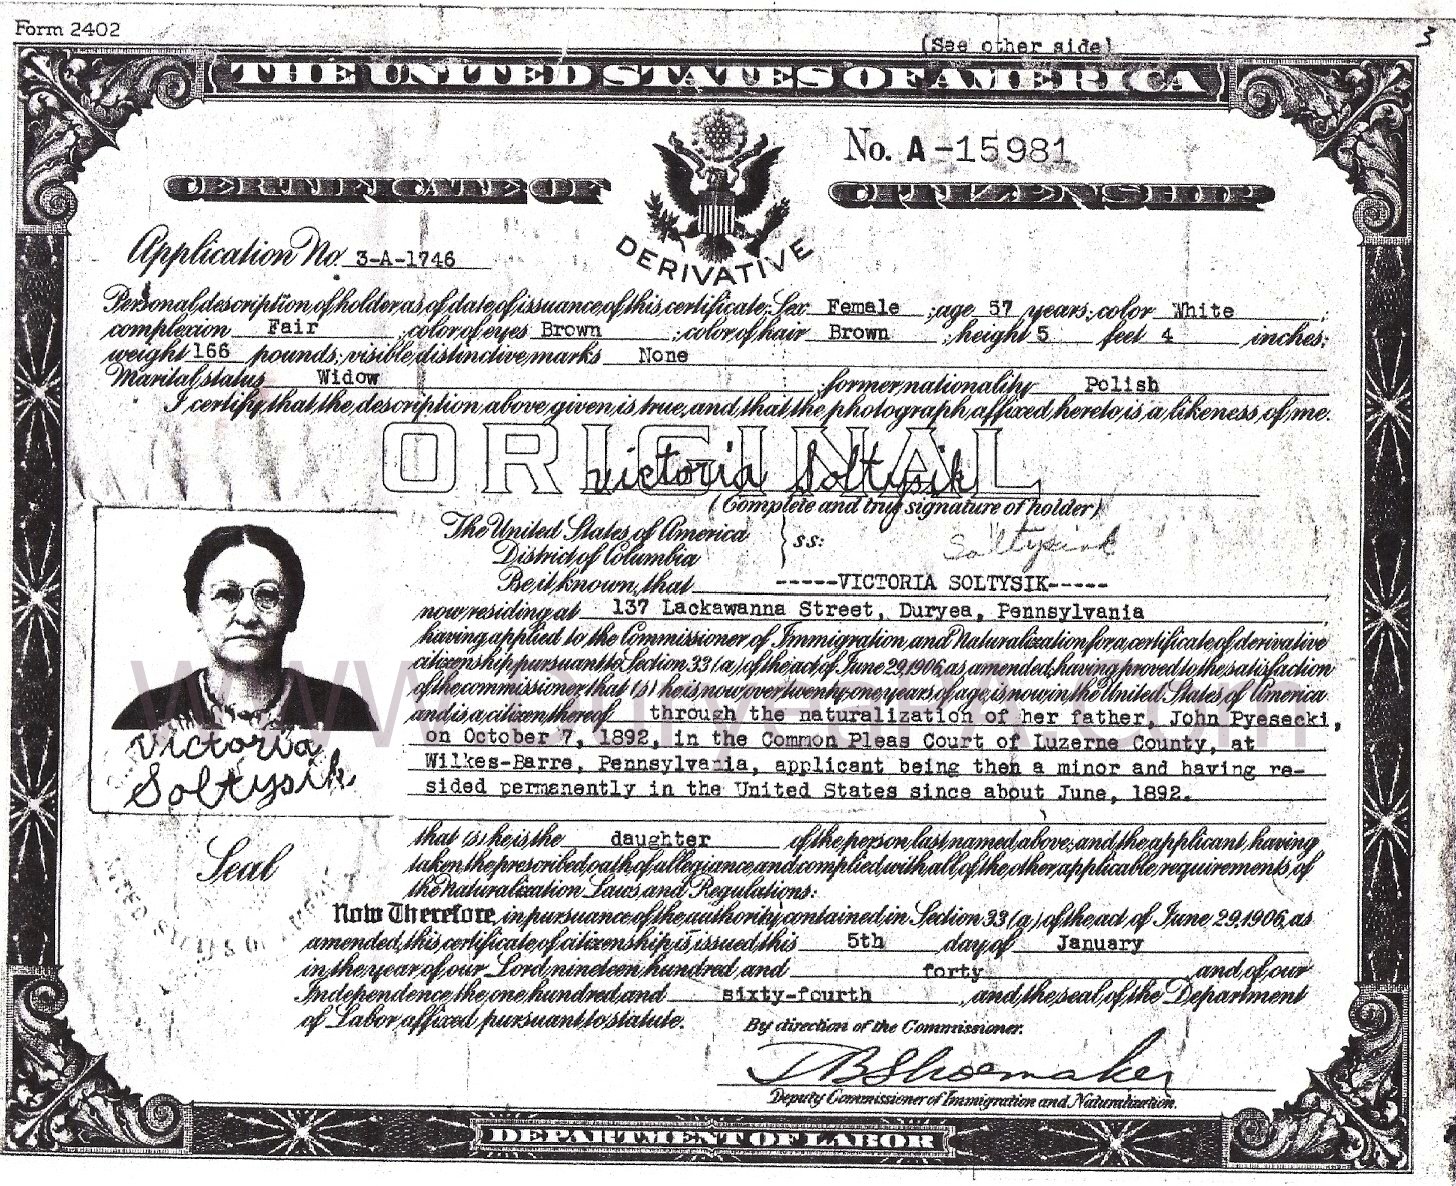 Form 2402
(See other side)
3
THE UNITED STATES OF AMERICA
No. A-15981
CERTIFICATE OF CITIZENSHIP
DERIVATIVE
Application No. 3-A-1746
Personal description of holder as of date of issuance of this certificate: Sex Female ; age 57 years; color White ;
complexion Fair ; color of eyes Brown ; color of hair Brown ; height 5 feet 4 inches;
weight 166 pounds; visible distinctive marks None
Marital status Widow ; former nationality Polish
I certify that the description above given is true, and that the photograph affixed hereto is a likeness of me.
ORIGINAL
Victoria Soltysik
(Complete and true signature of holder)
The United States of America
District of Columbia } ss:
Soltysink
Be it known, that -----VICTORIA SOLTYSIK-----
now residing at 137 Lackawanna Street, Duryea, Pennsylvania
having applied to the Commissioner of Immigration and Naturalization for a certificate of derivative
citizenship pursuant to Section 33 (a) of the act of June 29, 1906, as amended, having proved to the satisfaction
of the commissioner that (s)he is now over twenty-one years of age, is now in the United States of America
and is a citizen thereof through the naturalization of her father, John Pyesecki,
on October 7, 1892, in the Common Pleas Court of Luzerne County, at
Wilkes-Barre, Pennsylvania, applicant being then a minor and having re-
sided permanently in the United States since about June, 1892.
www.DuryeaPA.com
Victoria
Soltysik
that (s)he is the daughter of the person last named above; and the applicant, having
taken the prescribed oath of allegiance and complied with all of the other applicable requirements of
the Naturalization Laws and Regulations:
Seal
Now Therefore, in pursuance of the authority contained in Section 33 (a) of the act of June 29, 1906, as
amended, this certificate of citizenship is issued this 5th day of January
in the year of our Lord nineteen hundred and forty , and of our
Independence the one hundred and sixty-fourth , and the seal of the Department
of Labor affixed pursuant to statute.
By direction of the Commissioner.
TB Shoemaker
Deputy Commissioner of Immigration and Naturalization.
DEPARTMENT OF LABOR